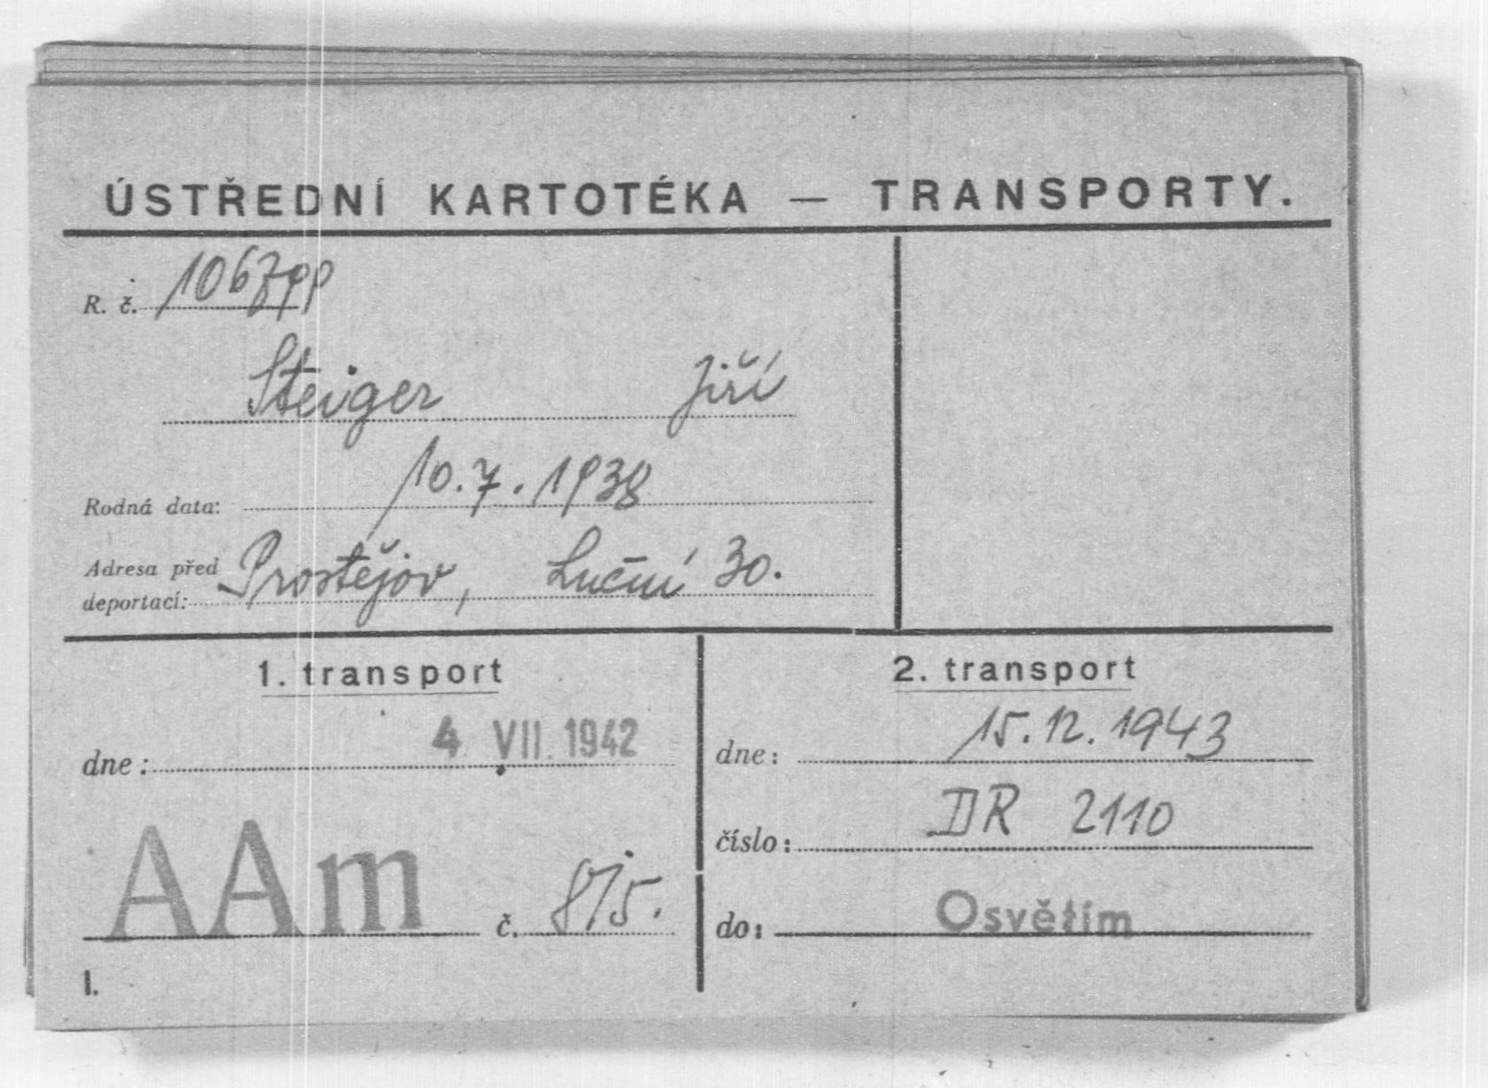 ÚSTŘEDNÍ KARTOTÉKA — TRANSPORTY.
R. č.
Steiger Jiří
Rodná data: 10.7.1938
Adresa před deportací: Prostějov, Luční 30.
1. transport
dne: 4 VII. 1942
AAm č. 815.
I.
2. transport
dne: 15.12.1943
číslo: DR 2110
do: Osvětim